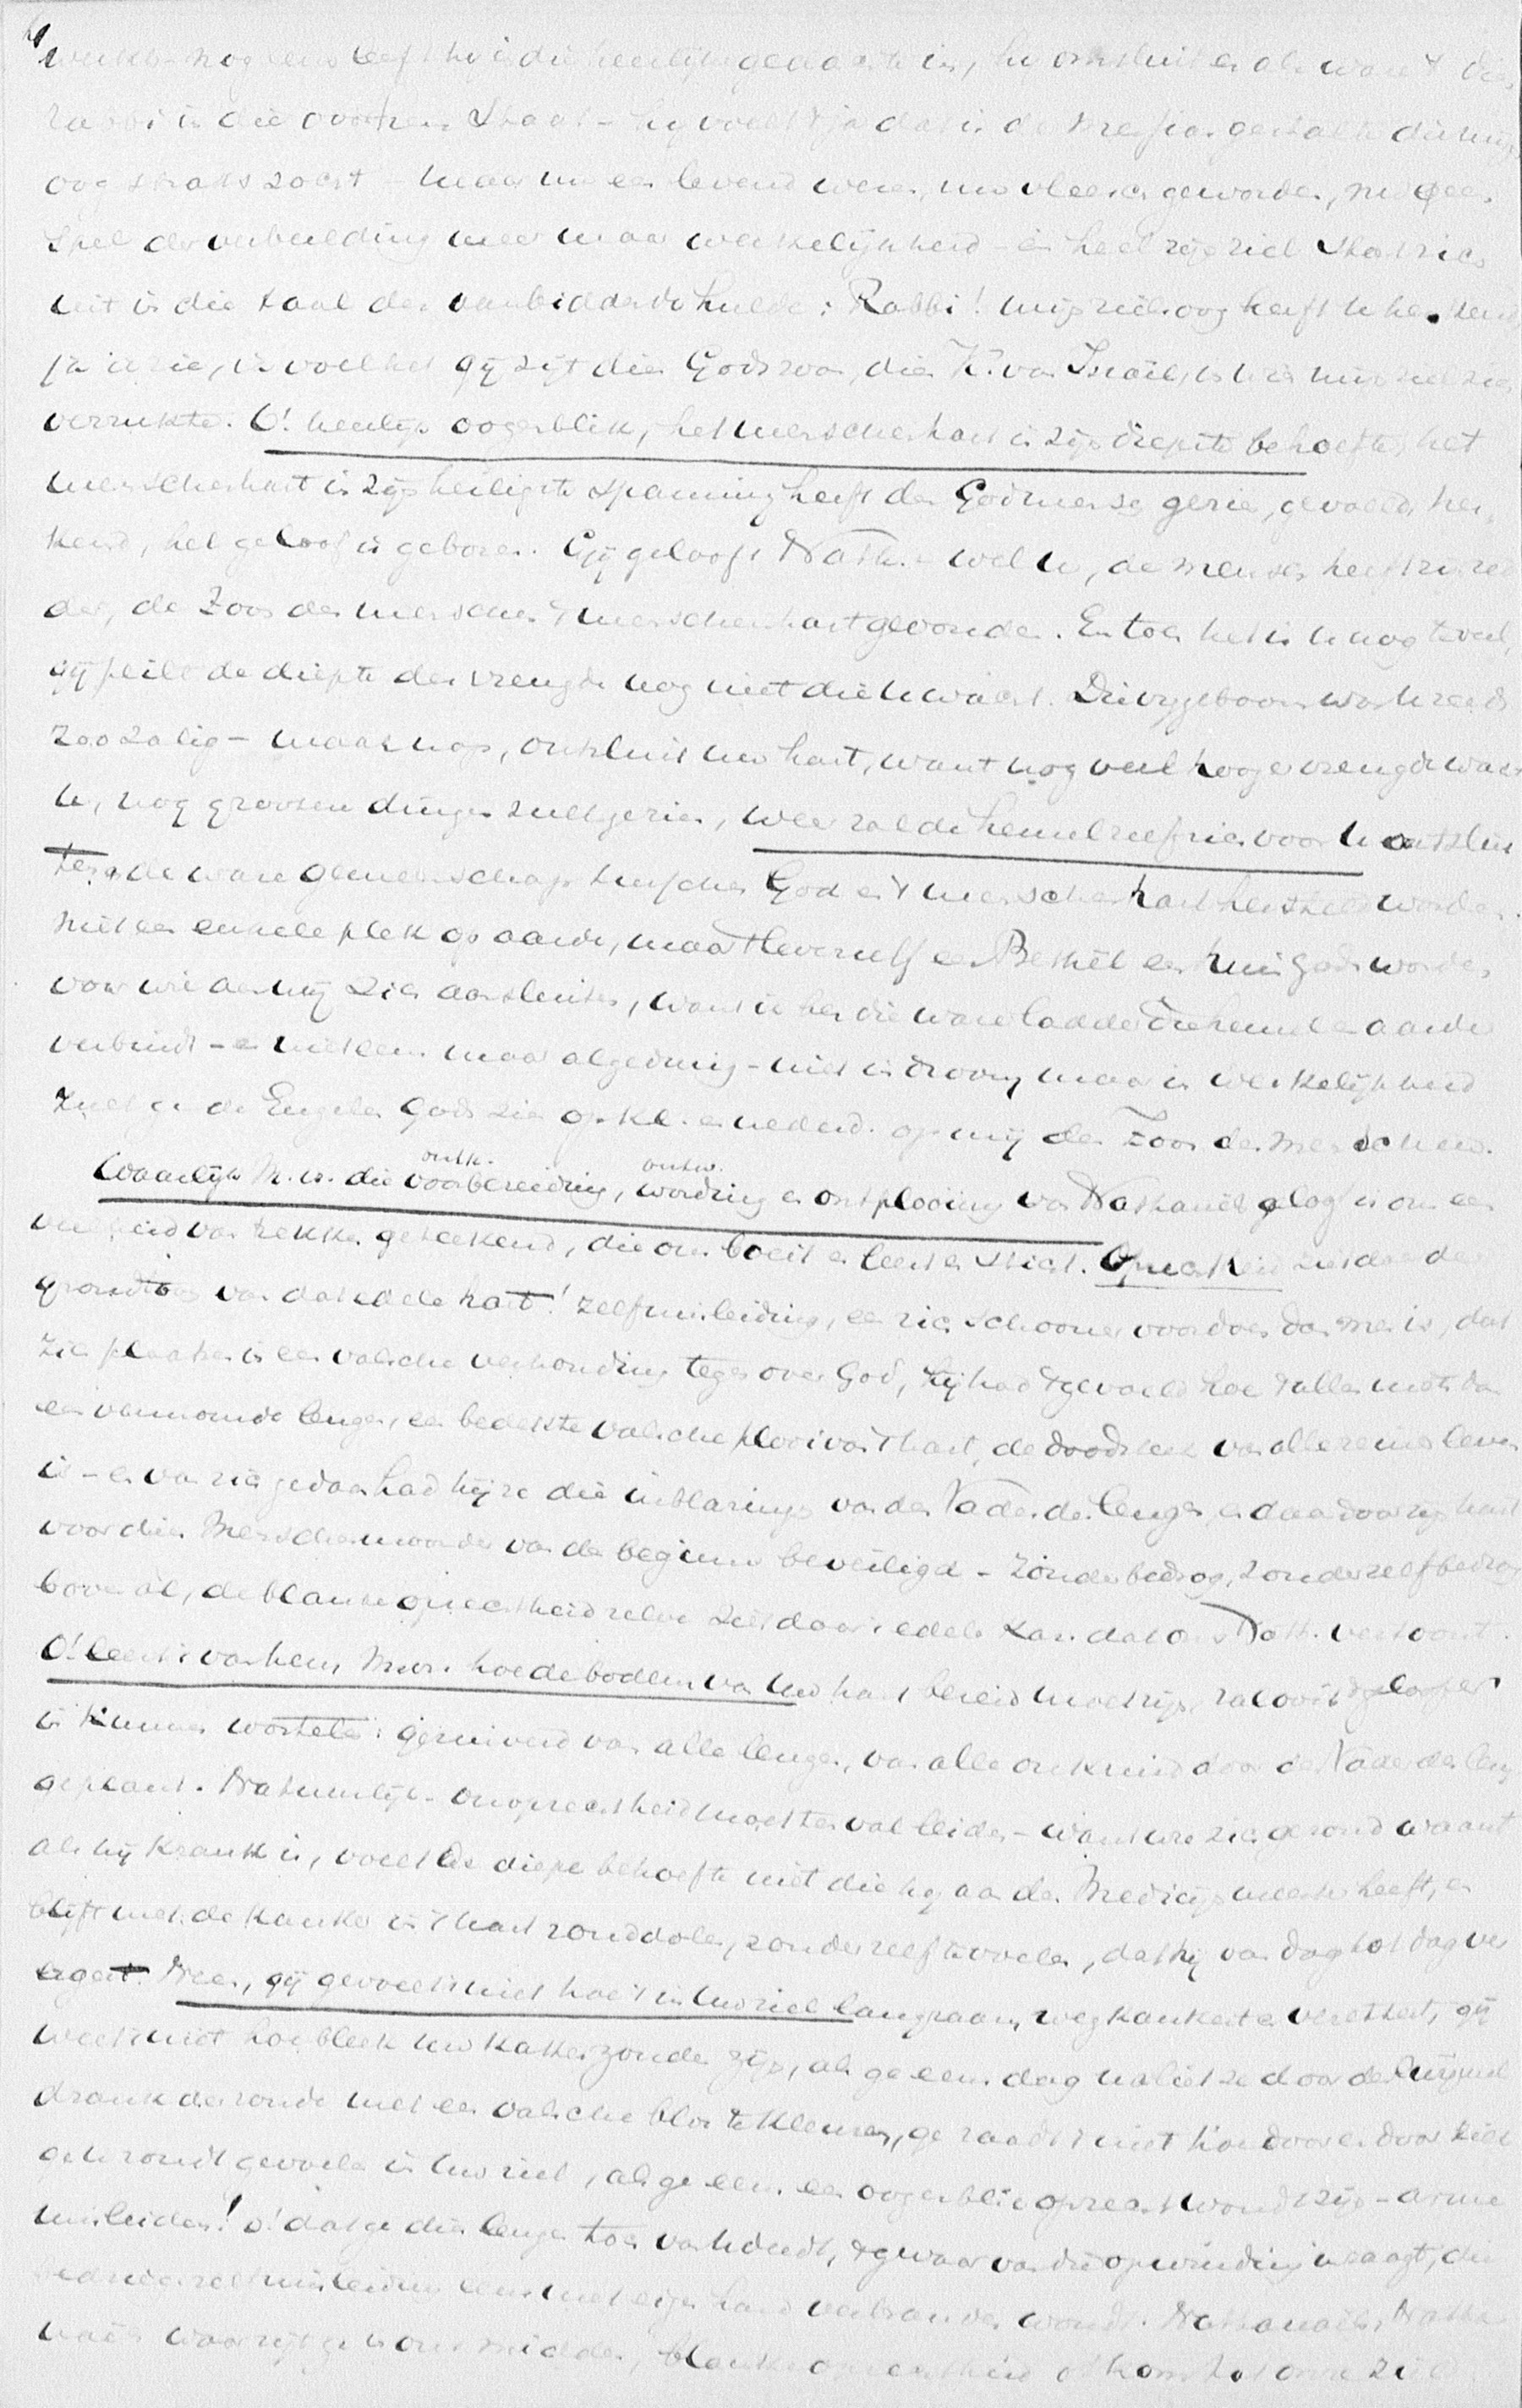 nog eens leeft hij in die heerlijke gedachte in, hij omsluit er als ware 't dien
in die Staat - hij voelt 't ja dat is de Messias gestalte die mijn
oog straks zocht - maar nu een levend wezen, nu vleesch geworden, nu geen
spel der verbeelding meer maar werkelijkheid - en heel zijn ziel stort zich
uit in die taal der aanbiddende hulde: Rabbi! mijn zielsoog heeft U herkend
ja ik zie, ik voel het gij zijt die Godszoon, die K. van Israël, in wien mijn ziel zich
verrukte. O! heerlijk oogenblik, het menschenhart in zijn diepste behoefte, het
menschenhart in zijn heiligste spanning heeft den Godmensch gezien, gevoeld, her-
kend, het geloof is geboren. Gij gelooft Nath. - wel u, de mensch heeft zijn red
der, de Zoon des menschen 't menschenhart gevonden. En toch het is u nog te veel,
gij peilt de diepte der vreugde nog niet die u wacht. Die vijgeboom was u reeds
zoo zalig - maar nog, ontsluit uw hart, want nog veel hooger vreugde wacht
u, nog grooter dingen zult ge zien, weer zal de hemel zelf zich voor u ontslui
ten, de ware gemeenschap tusschen God en 't menschenhart hersteld worden.
niet een enkele plek op aarde, maar 't leven zelf een Bethel een huis Gods worden
voor wie aan mij zich aansluiten, want ik ben die ware ladder die hemel en aarde
verbindt - en niet eens maar algedurig - niet in droom maar in werkelijkheid
zult ge de Engelen Gods zien opkl. en nederd. op mij den Zoon des menschen.
ontk. ontw.
Waarlijk M. H. die voorbereiding, wording en ontplooiing van Nathanaels geloof is ons een
van trekken geteekend, die ons boeit en leert en sticht. Oprechtheid ziet daar den
grondtoon van dat edele hart! zelfmisleiding, en zich schooner voordoen dan men is, dat
zich plaatsen in een valsche verhouding tegenover God, hij had 't gevoeld hoe 't alles niets dan
een vermomde leugen, een bedekte valsche plooi van 't hart, de doodsteek van alle reiner leven
is - en van zich gedaan had hij ze die inblazing van den Vader der leugen en daardoor zijn hart
voor dien Menschenmoorder van den beginne beveiligd - zonder bedrog, zonder zelfbedrog
bovenal, de blanke oprechtheid zelve ziet daar 't edele dat ons Nath. vertoont.
O! leert 't van hem, M. hoe de bodem van uw hart bereid moet zijn, zal ooit 't geloof er
in kunnen wortelen: gezuiverd van alle leugen, van alle onkruid door den Vader der leug.
geplant. Natuurlijk - onoprechtheid moet ten val leiden - want wie zich gezond waant
als hij krank is, voelt de diepe behoefte niet die hij aan den Medicijnmeester heeft, en
blijft met de kanker in 't hart ronddolen, zonder zelf te voelen, dat hij van dag tot dag ver
ergert. Neen, gij gevoelt 't niet hoe 't in uw ziel langzaam wegkankert en verettert, gij
weet 't niet hoe bleek uw kaken zouden zijn, als ge eens een dag naliet ze door den
drank der zonde met een valsche blos te kleuren, ge raadt 't niet hoe door en door ziek
ge u zoudt gevoelen in uw ziel, als ge eens een oogenblik oprecht wondt zijn - arme
misleiden! o! dat ge die leugen toch van u deedt, 't gewaad van die opwinding
zelfmisleiding eens met eigen hand verbranden wondt. Nathanael, Natha
naël waar zijt ge in ons midden, blanke oprechtheid o! kom tot onze ziel